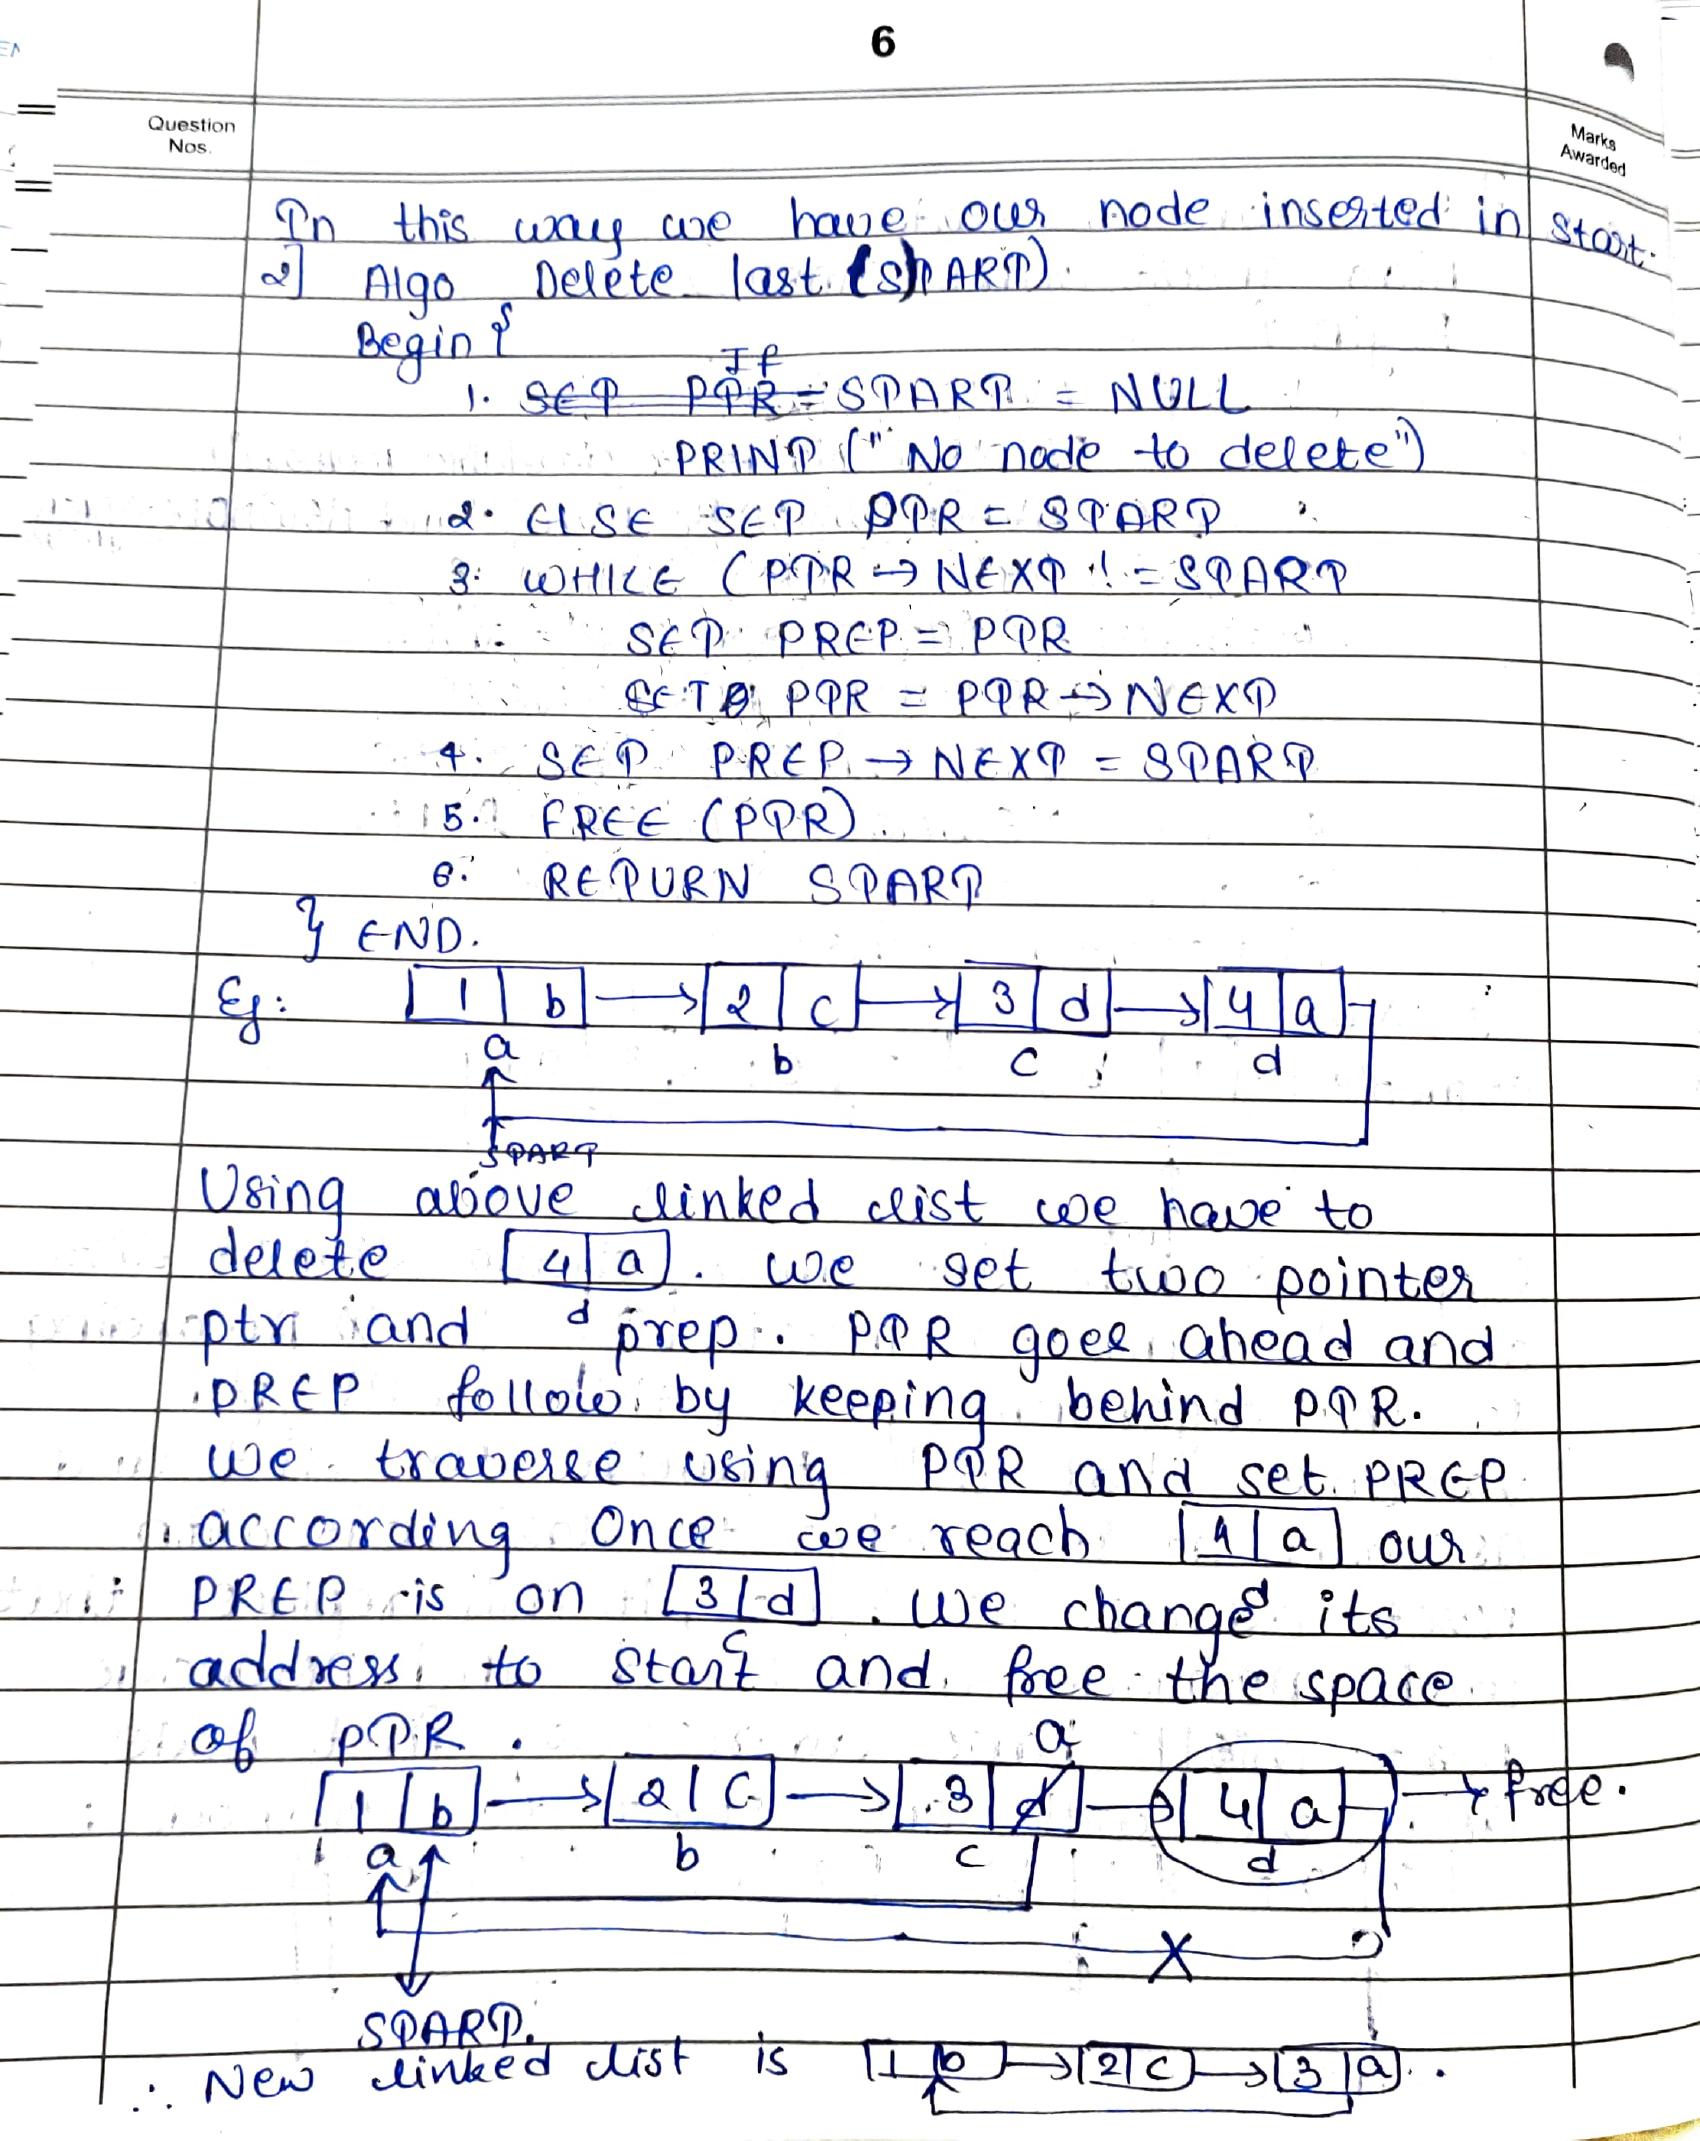 6
Question
Nos.
Marks
Awarded
In this way we have our node inserted in start.
2] Algo Delete last (START).
Begin {
If
1. SET PTR = START = NULL
PRINT (" No node to delete")
2. ELSE SET PTR = START
3. WHILE (PTR → NEXT != START
SET PREP = PTR
SET PTR = PTR → NEXT
4. SET PREP → NEXT = START
5. FREE (PTR)
6. RETURN START
} END.
Eg: 1 b → 2 c → 3 d → 4 a
a b c d
START
Using above linked list we have to
delete 4 a . we set two pointer
d
ptr and prep . PTR goes ahead and
PREP follow by keeping behind PTR.
we traverse using PTR and set PREP
according once we reach 4 a our
d
PREP is on 3 d . We change its
c
address to start and free the space
of PTR .
a
1 b → 2 C → 3 d → 4 a → free.
a b c d
X
START.
∴ New linked list is 1 b → 2 c → 3 a .